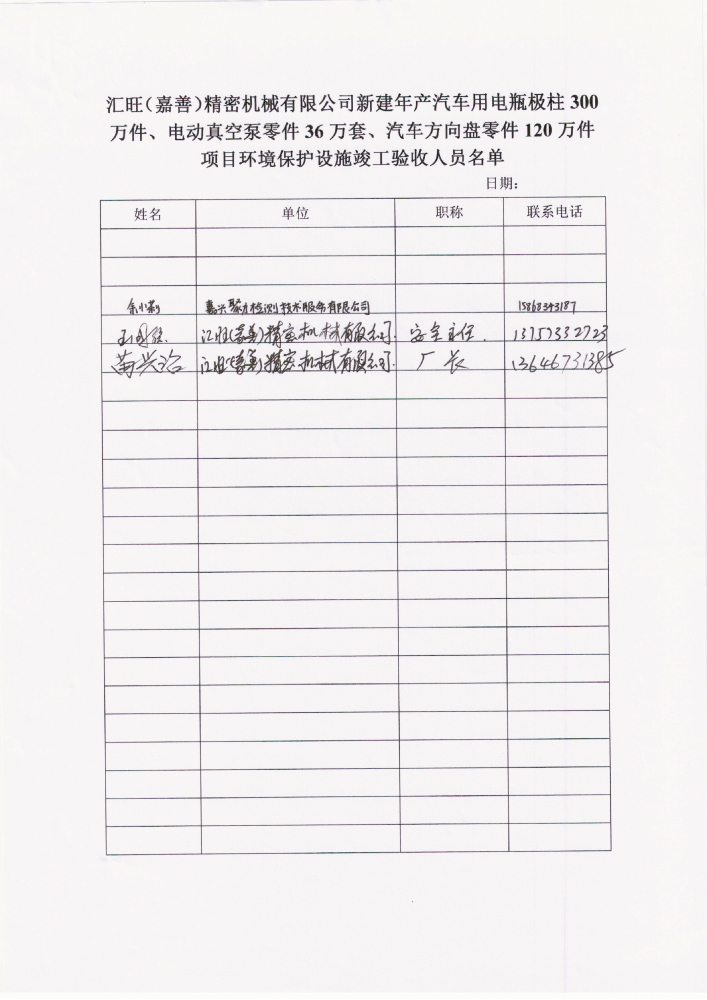 汇旺（嘉善）精密机械有限公司新建年产汽车用电瓶极柱 300
万件、电动真空泵零件 36 万套、汽车方向盘零件 120 万件
项目环境保护设施竣工验收人员名单
日期：
姓名 单位 职称 联系电话
嘉兴聚力检测技术服务有限公司 15868343187
汇旺(嘉善)精密机械有限公司. 安全主任. 13757332723
苗兴治 汇旺(嘉善)精密机械有限公司. 厂长 13646731385